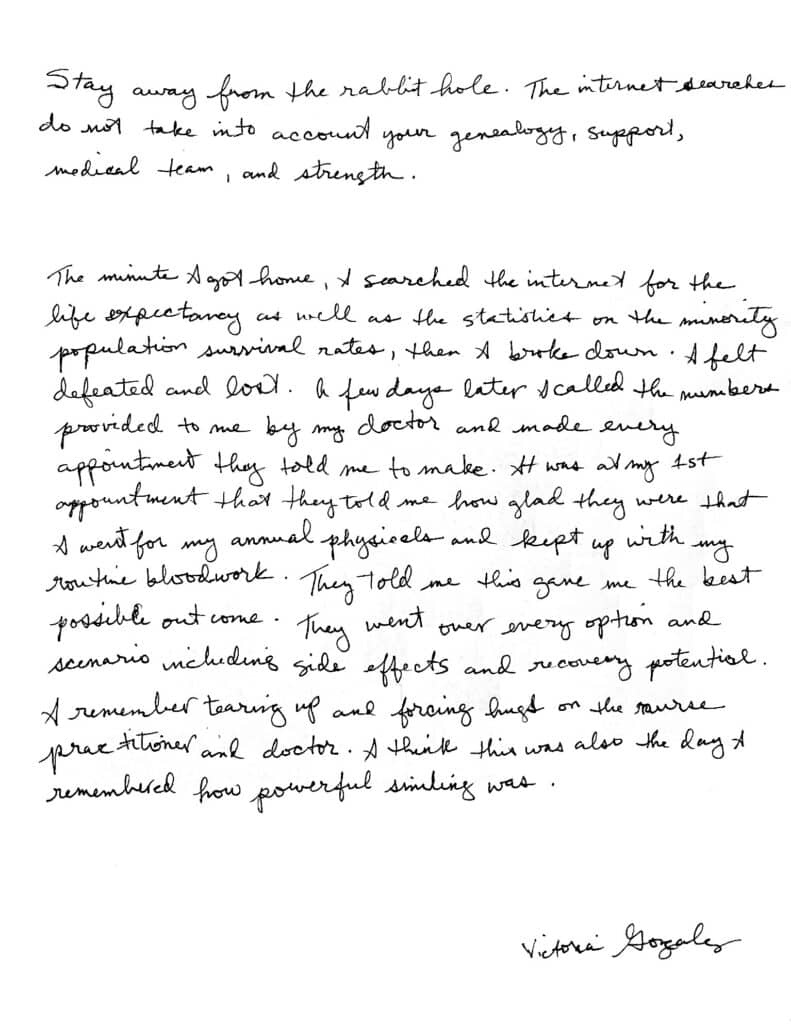 Stay away from the rabbit hole. The internet searches
do not take into account your genealogy, support,
medical team, and strength.
The minute I got home, I searched the internet for the
life expectancy as well as the statistics on the minority
population survival rates, then I broke down. I felt
defeated and lost. A few days later I called the numbers
provided to me by my doctor and made every
appointment they told me to make. It was at my 1st
appountment that they told me how glad they were that
I went for my annual physicals and kept up with my
routine bloodwork. They told me this gave me the best
possible outcome. They went over every option and
scenario including side effects and recovery potential.
I remember tearing up and forcing hugs on the nurse
practitioner and doctor. I think this was also the day I
remembered how powerful smiling was.
Victoria Gonzalez